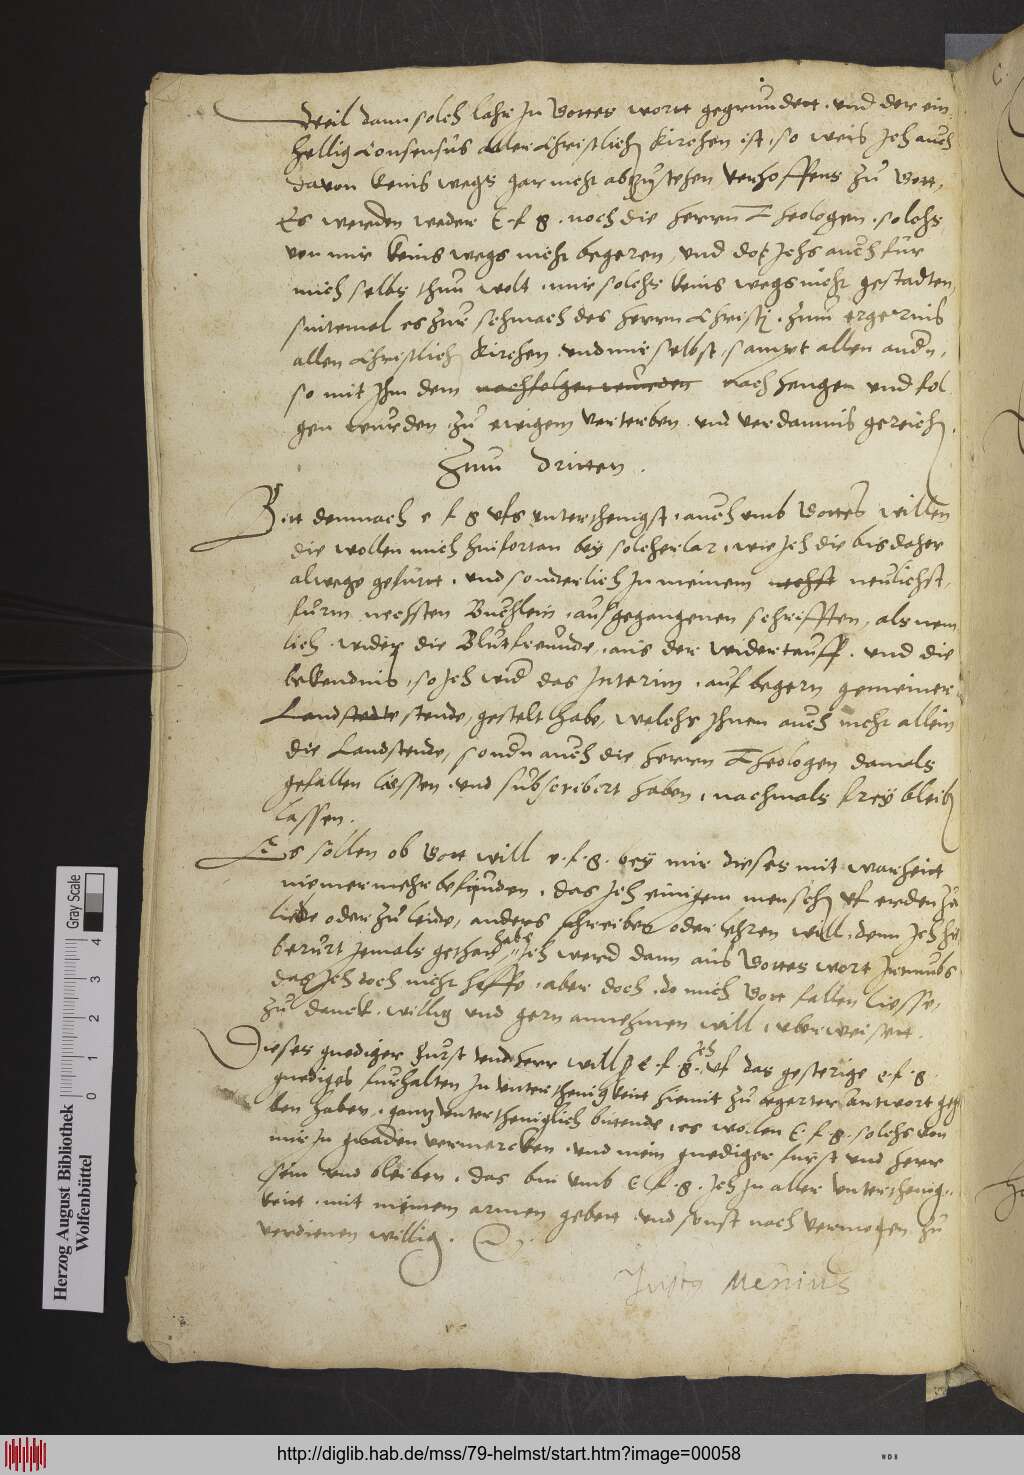 Weil dann solch lahr Jn Gottes wortt gegrundett, und der ein
hellig Consensus aller Christlichen Kirchen ist, so weis Jch auch
davon keins wegs gar nicht abzustehen verhoffens zu Gott,
Es werden weder E. f. g. noch die herrn Theologen, solchs
von mir keins wegs nicht begeren, und do Jchs auch fur
mich selbs thun wolt, mir solchs keins wegs nicht gestadten,
sintemal es zur schmach des herrn Christi, zum ergernis
allen Christlichen Kirchen, und mir selbst, sampt allen andern,
so mit Jhm dem nachfolgen wurden nach hengen und fol
gen wurden, zu ewigem verterben und verdamnis gereichen.
Zum dritten.
Bitt demnach e f g ufs unterthenigst, auch umb Gottes willen
die wollen mich hinfortan bey solcher lar, wie Jch die bis daher
alwege gefurt, und sonderlich Jn meinem nechst neulichst,
furm nechsten Buchlein, ausgegangenen schrifften, als nem
lich, wider die Blutfreunde, aus der widertauff, und die
bekendnis, so Jch wider das Interim, auf begern gemeiner
Landstedte stende, gestelt habe, welchs Jhnen auch nicht allein
die Landstende, sondern auch die herren Theologen damals
gefallen liessen, und subscribert haben, nachmals frey bleiben
lassen.
Es sollen ob Gott will e. f. g. bey mir dieses mit warheitt
niemermehr befinden, das Jch einigem menschen uf erden zu
liebe oder zu leide, anders schreiben oder lehren will, denn Jch hie
berurt Jemals gethan habe, Jch werd dann aus Gottes wort Jrrtumbs
das Jch doch nicht hoffe, aber doch, do mich Gott fallen liesse,
zu danck, willig und gern annehmen will, uberweisett.
Dieses gnediger Furst und herr will E. f. g. Jch uf das gesterige e. f. g.
gnediges furhalten Jn unterthenigkeit hiemit zu begerter antwort geg
ben haben, gantz untertheniglich bittende, es wollen E. f. g. solchs von
mir Jn gnaden vermercken, und mein gnediger furst und herr
sein und bleiben, das bin umb E. f. g. Jch Jn aller unterthenig-
keit, mit meinem armen gebett, und sonst nach vermogen zu
verdienen willig.
Justus Menius
Gray Scale
0 1 2 3 4
Herzog August Bibliothek
Wolfenbüttel
http://diglib.hab.de/mss/79-helmst/start.htm?image=00058